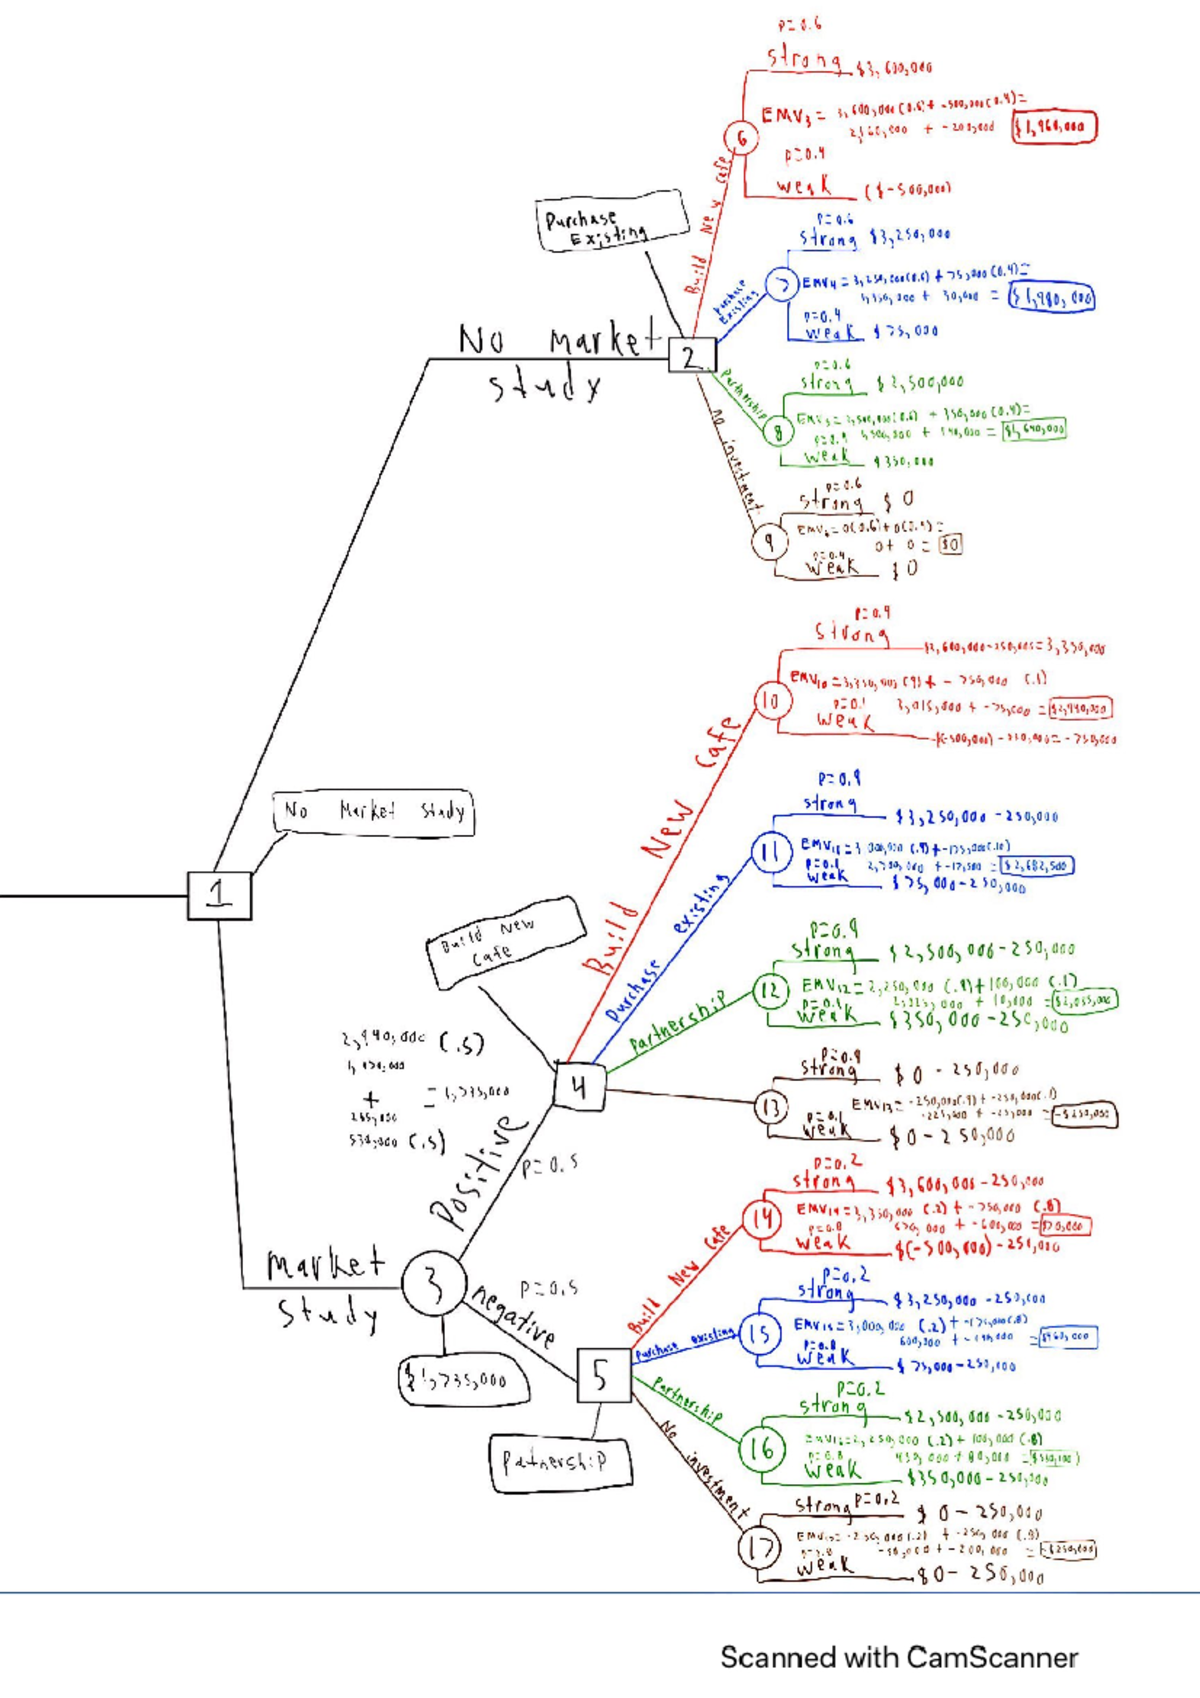 P=0.6
strong $3,600,000
EMV3 = 3,600,000(0.6) + -500,000(0.4)=
2,160,000 + -200,000 $1,960,000
6
P=0.4
weak ($-500,000)
Build New cafe
Purchase
Existing
P=0.6
strong $3,250,000
7
EMV4=3,250,000(0.6) + 75,000(0.4)=
1,950,000 + 30,000 = $1,980,000
P=0.4
weak $75,000
Purchase
Existing
No market
study
2
P=0.6
strong $2,500,000
Partnership
8
EMV5=2,500,000(0.6) + 350,000(0.4)=
P=0.4 1,500,000 + 140,000 = $1,640,000
weak $350,000
no investment
P=0.6
strong $0
9
EMV6=0(0.6)+0(0.4)=
0+ 0= $0
P=0.4
weak $0
P=0.9
strong
$3,600,000-250,000=3,350,000
10
EMV10=3,350,000(.9)+ -750,000 (.1)
P=0.1 3,015,000 + -75,000 = $2,940,000
weak
(-500,000) -250,000= -750,000
Build New Cafe
No Market Study
1
P=0.9
strong $3,250,000-250,000
11
EMV11=3,000,000(.9)+-175,000(.10)
P=0.1 2,700,000 + -17,500 = $2,682,500
weak $75,000-250,000
Purchase existing
Build New
Cafe
P=0.9
strong $2,500,000-250,000
12
EMV12=2,250,000(.9)+100,000(.1)
P=0.1 2,025,000 + 10,000 = $2,035,000
weak $350,000-250,000
Partnership
2,940,000 (.5)
1,470,000
+ =1,735,000
265,000
530,000 (.5)
4
P=0.9
strong $0-250,000
13
EMV13= -250,000(.9)+ -250,000(.1)
P=0.1 -225,000 + -25,000 = -$250,000
weak $0-250,000
Positive
P=0.5
P=0.2
strong $3,600,000-250,000
14
EMV14=3,350,000 (.2) + -750,000 (.8)
P=0.8 670,000 + -600,000 = $70,000
weak $(-500,000)-250,000
Build New Cafe
market
study
3
P=0.5
negative
$1,735,000
P=0.2
strong $3,250,000-250,000
15
EMV15=3,000,000 (.2)+-175,000(.8)
P=0.8 600,000 + -140,000 = $460,000
weak $75,000-250,000
Purchase existing
5
Partnership
P=0.2
strong $2,500,000-250,000
Partnership
16
2,250,000 (.2)+ 100,000 (.8)
P=0.8 450,000 + 80,000
weak $350,000-250,000
No investment
strong P=0.2 $0-250,000
17
-250,000(.2) + -250,000 (.8)
-50,000 + -200,000 = -$250,000
weak $0-250,000
Scanned with CamScanner